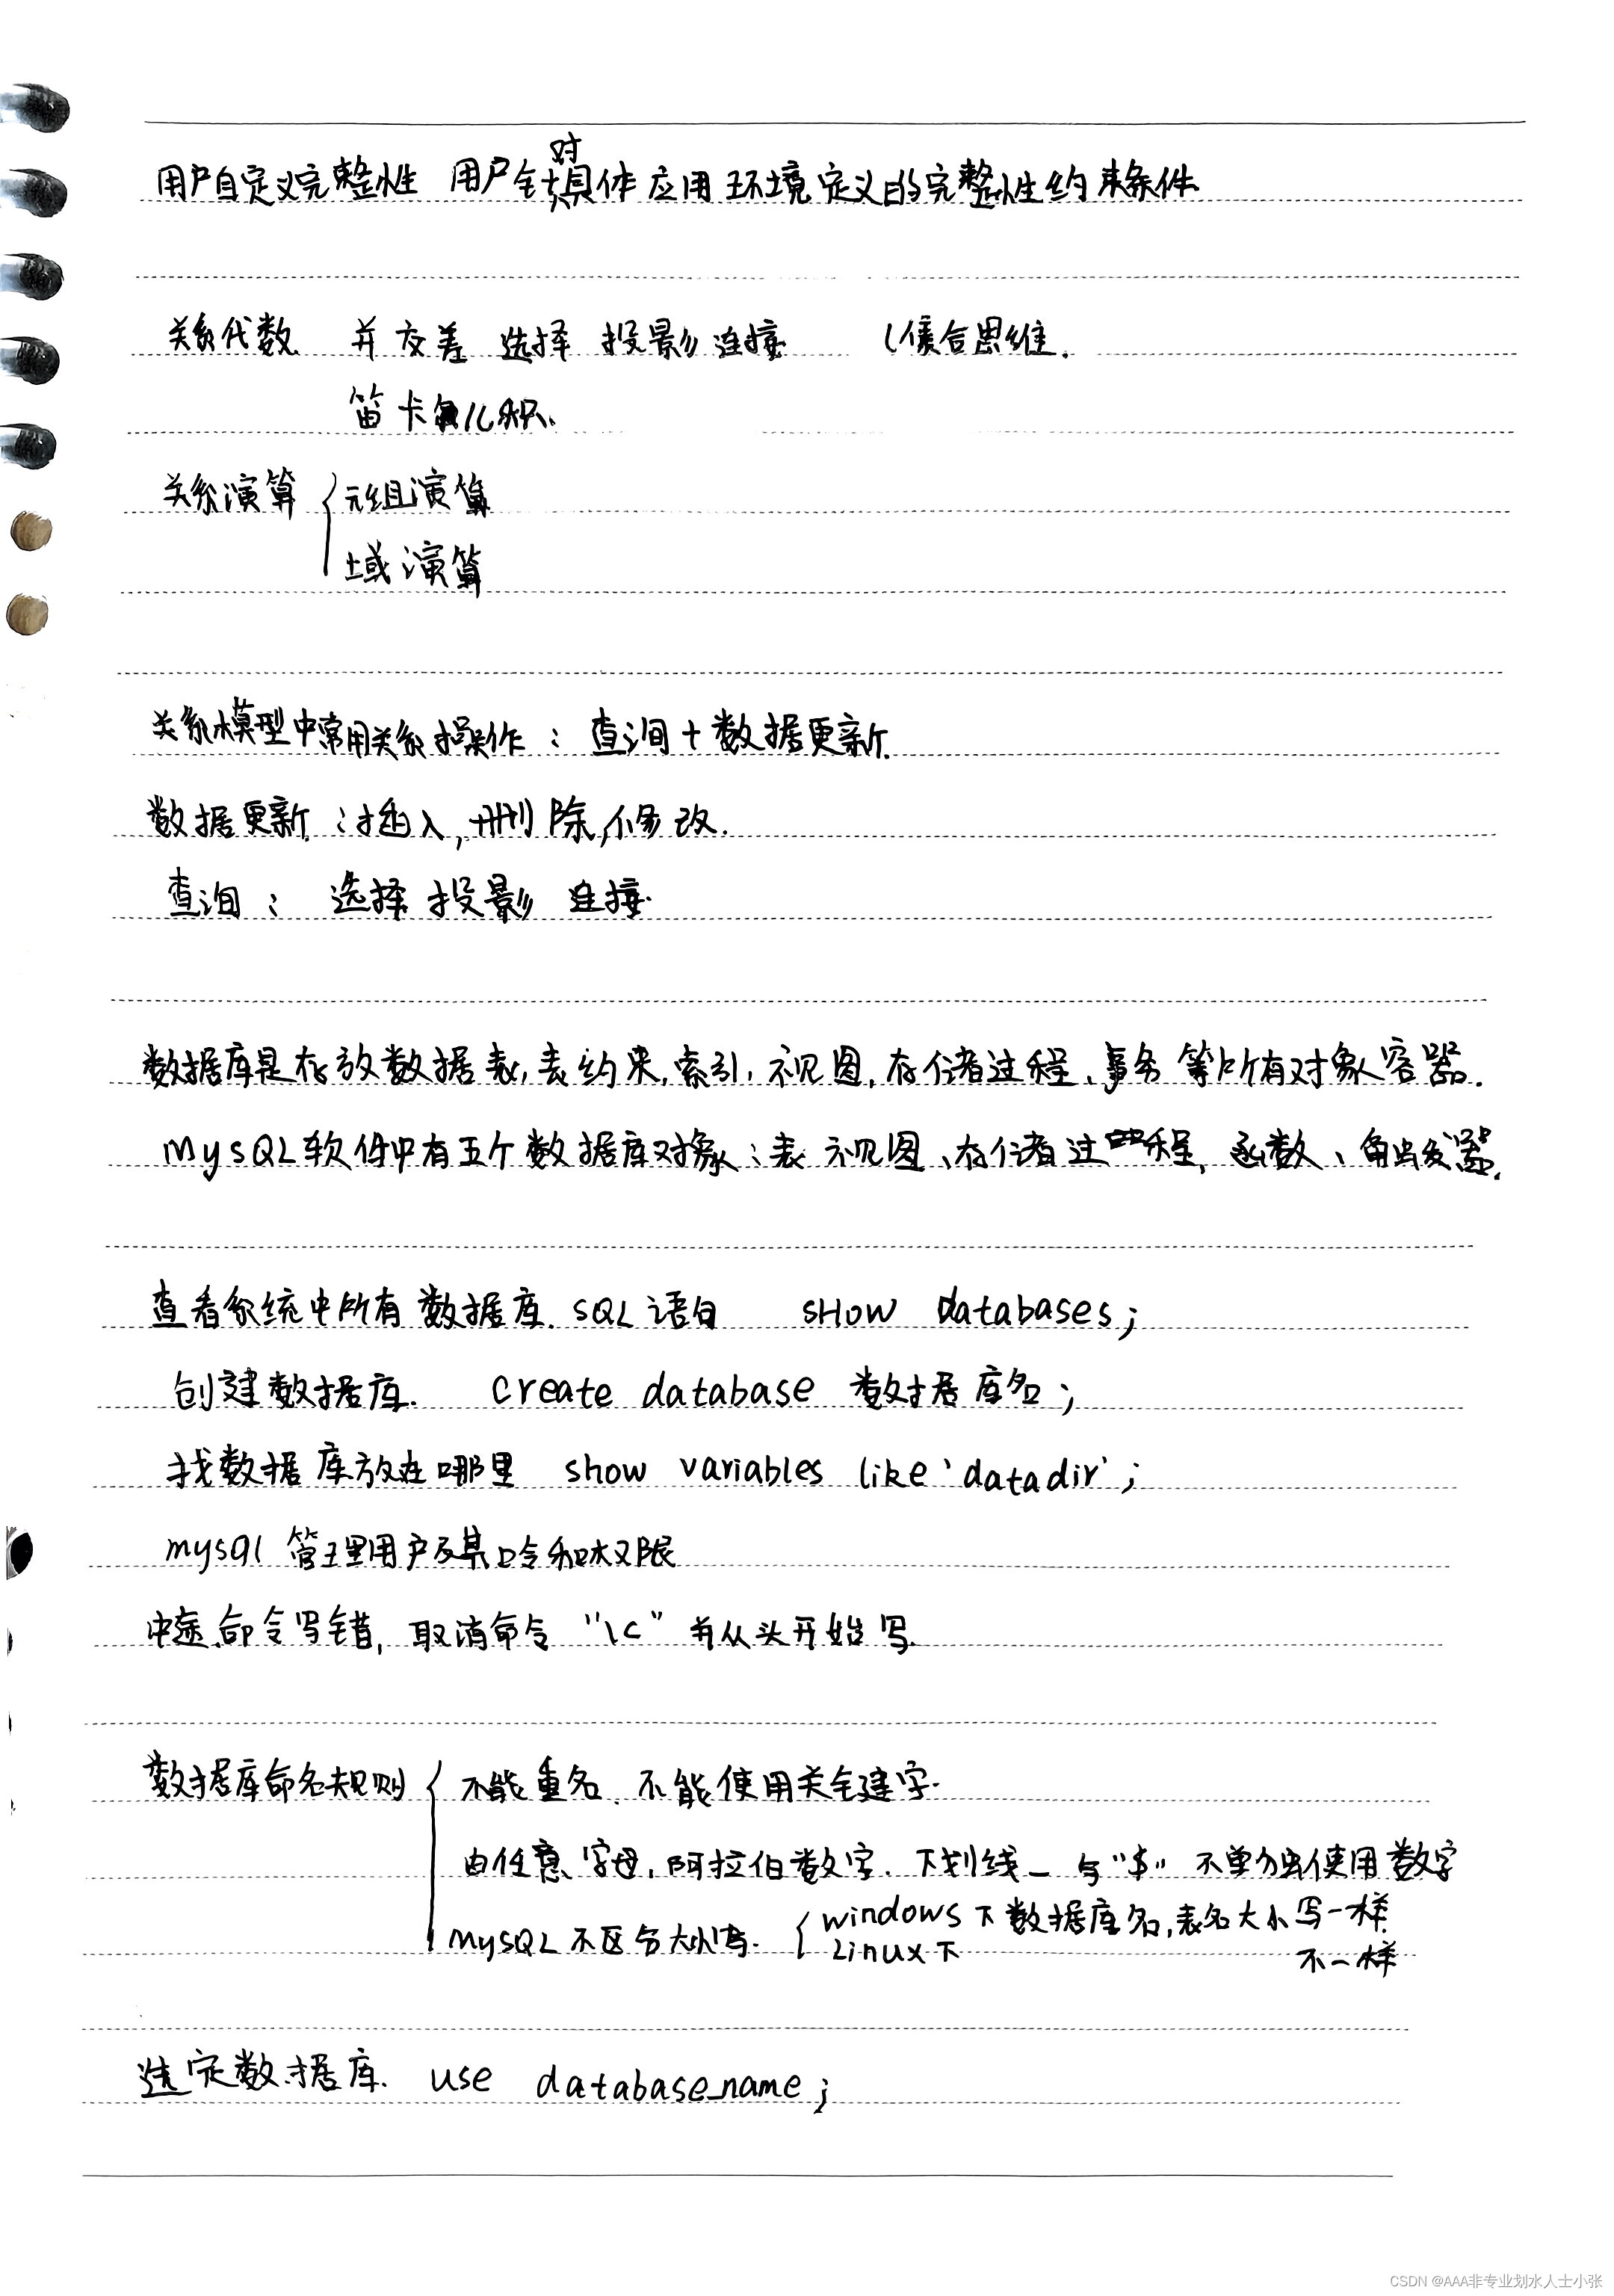 用户自定义完整性 用户针对具体应用环境定义的完整性约束条件.
关系代数 并 交 差 选择 投影 连接 (集合思维.
笛卡尔儿积.
关系演算 { 元组演算
域演算
关系模型中常用关系操作：查询+数据更新.
数据更新：插入,删除,修改.
查询： 选择 投影 连接.
数据库是存放数据表,表约束,索引,视图,存储过程、事务等所有对象容器.
MySQL软件中有五个数据库对象：表 视图、存储过程,函数、触发器.
查看系统中所有数据库. SQL语句 SHOW databases;
创建数据库. create database 数据库名;
找数据库放在哪里 show variables like 'datadir';
mysql 管理用户及其口令和权限
中途命令写错,取消命令 "\c" 并从头开始写.
数据库命名规则 { 不能重名、不能使用关键字.
由任意字母,阿拉伯数字、下划线_与"$" 不单独使用数字
MySQL不区分大小写. { windows下数据库名,表名大小写一样
Linux下 不一样
选定数据库. use database_name;
CSDN @AAA非专业划水人士小张